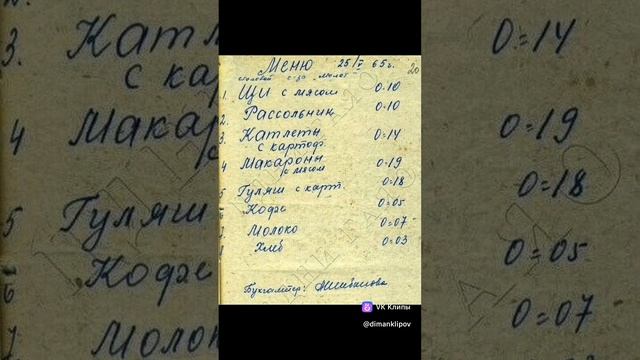 Меню 25/V 65г. 20
столовой с-за "Молот"
1. Щи с мясом 0-10
2. Рассольник 0-10
3. Катлеты с картоф. 0=14
4 Макароны с мясом 0-19
5 Гуляш с карт. 0=18
6 Кофе 0=05
7 Молоко 0=07
8 Хлб 0=03
Бухгалтер:
VK Клипы
@dimanklipov
3. Катле
с кар 0=14
4 Мака 0=19
0=18
5 Гуляш
0=05
6 Кофе
0=07
7 Молок